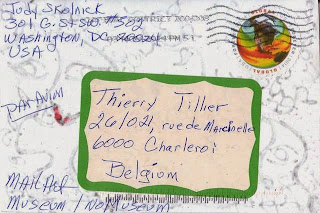 Judy Skolnick
301 G. St SW. #
Washington, DC 20024
USA
PAR AVION
Thierry Tillier
26/021, rue de Marcinelle
6000 Charleroi
Belgium
MAIL Art
Museum / No Museum
GLOBAL